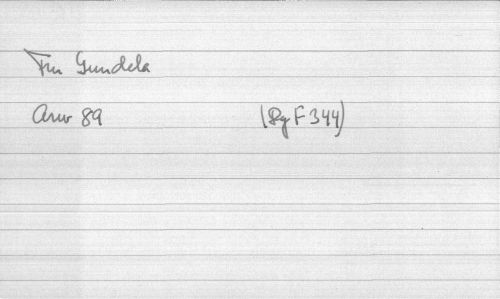 Fru Gundela
Arw 89 (Rg F 344)